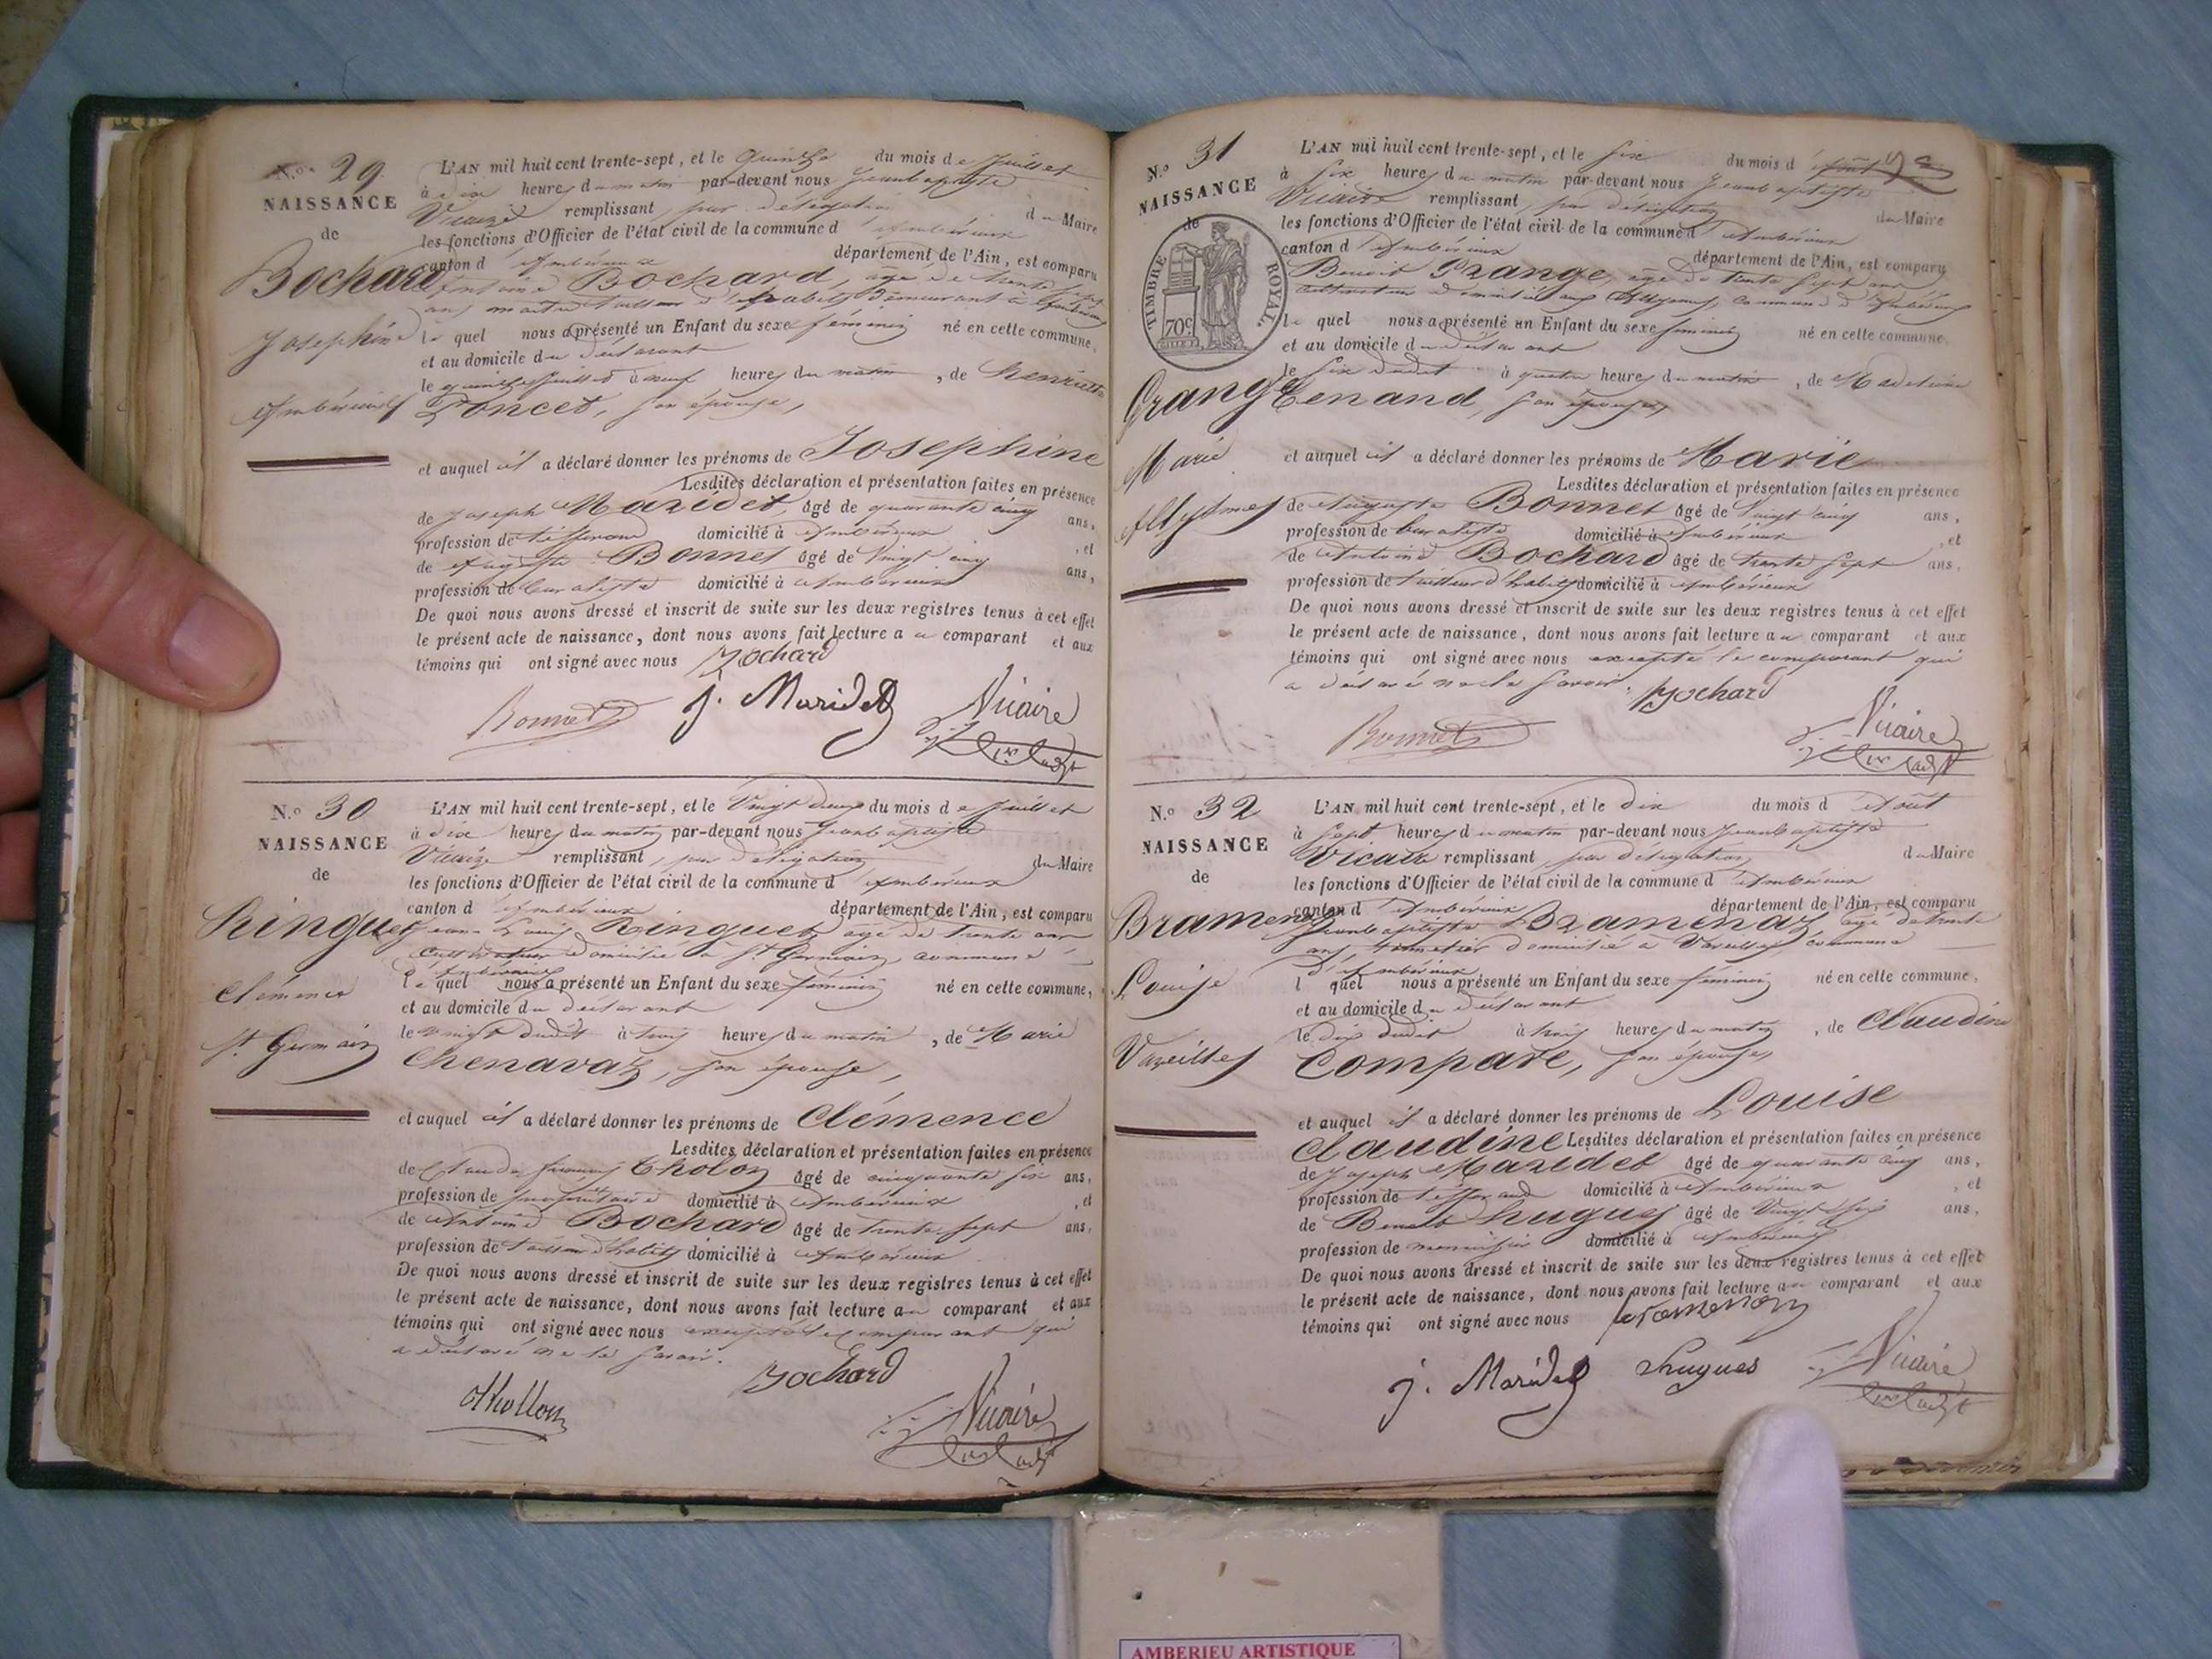 N.o 29.
NAISSANCE
de
Bochard
Joséphine
Ambérieux
L'AN mil huit cent trente-sept, et le quinze du mois de Juillet
à dix heures du matin par-devant nous Jean baptiste
Vicaire remplissant, par délégation du Maire
les fonctions d'Officier de l'état civil de la commune d'Ambérieux
canton d'Ambérieux département de l'Ain, est comparu
Antoine Bochard, âgé de trente sept
ans maître tailleur d'habits demeurant à Ambérieux
lequel nous a présenté un Enfant du sexe féminin né en cette commune,
et au domicile du déclarant
le quinze Juillet à neuf heures du matin, de henriette
Poncet, son épouse,
et auquel il a déclaré donner les prénoms de Josephine
Lesdites déclaration et présentation faites en présence
de Joseph Maridet, âgé de quarante cinq ans,
profession de tisserand domicilié à Ambérieux, et
de Auguste Bonnet âgé de vingt cinq ans,
profession de buraliste domicilié à Ambérieux
De quoi nous avons dressé et inscrit de suite sur les deux registres tenus à cet effet
le présent acte de naissance, dont nous avons fait lecture au comparant et aux
témoins qui ont signé avec nous Bochard
Bonnet J. Maridet Vicaire
N.o 30
NAISSANCE
de
Ringuet
Clémence
St Germain
L'AN mil huit cent trente-sept, et le Vingt deux du mois de Juillet
à dix heures du matin par-devant nous Jean baptiste
Vicaire remplissant, par délégation du Maire
les fonctions d'Officier de l'état civil de la commune d'Ambérieux
canton d'Ambérieux département de l'Ain, est comparu
Jean Louis Ringuet âgé de trente ans
cultivateur domicilié à St Germain, commune
d'Ambérieux
lequel nous a présenté un Enfant du sexe féminin né en cette commune,
et au domicile du déclarant
le vingt dudit à trois heures du matin, de Marie
Chenavaz, son épouse,
et auquel il a déclaré donner les prénoms de Clémence
Lesdites déclaration et présentation faites en présence
de Claude françois Tholon âgé de cinquante six ans,
profession de propriétaire domicilié à Ambérieux, et
de Antoine Bochard âgé de trente sept ans,
profession de tailleur d'habits domicilié à Ambérieux
De quoi nous avons dressé et inscrit de suite sur les deux registres tenus à cet effet
le présent acte de naissance, dont nous avons fait lecture au comparant et aux
témoins qui ont signé avec nous excepté le comparant qui
a déclaré ne le savoir.
Bochard
Vicaire
N.o 31
NAISSANCE
de
TIMBRE ROYAL
70c
Grange
Marie
Allymes
L'AN mil huit cent trente-sept, et le six du mois d'Août
à six heures du matin par-devant nous Jean baptiste
Vicaire remplissant, par délégation du Maire
les fonctions d'Officier de l'état civil de la commune d'Ambérieux
canton d'Ambérieux département de l'Ain, est comparu
Benoit Grange, âgé de trente sept ans
cultivateur domicilié aux Allymes, commune d'Ambérieux
lequel nous a présenté un Enfant du sexe féminin né en cette commune,
et au domicile du déclarant
le six dudit à quatre heures du matin, de Madelaine
Tenand, son épouse,
et auquel il a déclaré donner les prénoms de Marie
Lesdites déclaration et présentation faites en présence
de Auguste Bonnet âgé de Vingt cinq ans,
profession de buraliste domicilié à Ambérieux, et
de Antoine Bochard âgé de trente sept ans,
profession de tailleur d'habits domicilié à Ambérieux
De quoi nous avons dressé et inscrit de suite sur les deux registres tenus à cet effet
le présent acte de naissance, dont nous avons fait lecture au comparant et aux
témoins qui ont signé avec nous excepté le comparant qui
a déclaré ne le savoir. Bochard
Bonnet Vicaire
N.o 32
NAISSANCE
de
Bramenaz
Louise
Vareilles
L'AN mil huit cent trente-sept, et le dix du mois d'Août
à sept heures du matin par-devant nous Jean baptiste
Vicaire remplissant, par délégation du Maire
les fonctions d'Officier de l'état civil de la commune d'Ambérieux
canton d'Ambérieux département de l'Ain, est comparu
Jean baptiste Bramenaz âgé de trente
ans, domicilié à Vareilles, commune
d'Ambérieux
lequel nous a présenté un Enfant du sexe féminin né en cette commune,
et au domicile du déclarant
le dix dudit à trois heures du matin, de Claudine
Compare, son épouse,
et auquel il a déclaré donner les prénoms de Louise
Claudine Lesdites déclaration et présentation faites en présence
de Joseph Maridet âgé de quarante cinq ans,
profession de tisserand domicilié à Ambérieux, et
de Benoit hugues âgé de Vingt six ans,
profession de menuisier domicilié à Ambérieux
De quoi nous avons dressé et inscrit de suite sur les deux registres tenus à cet effet
le présent acte de naissance, dont nous avons fait lecture au comparant et aux
témoins qui ont signé avec nous
J. Maridet hugues Vicaire
AMBERIEU ARTISTIQUE